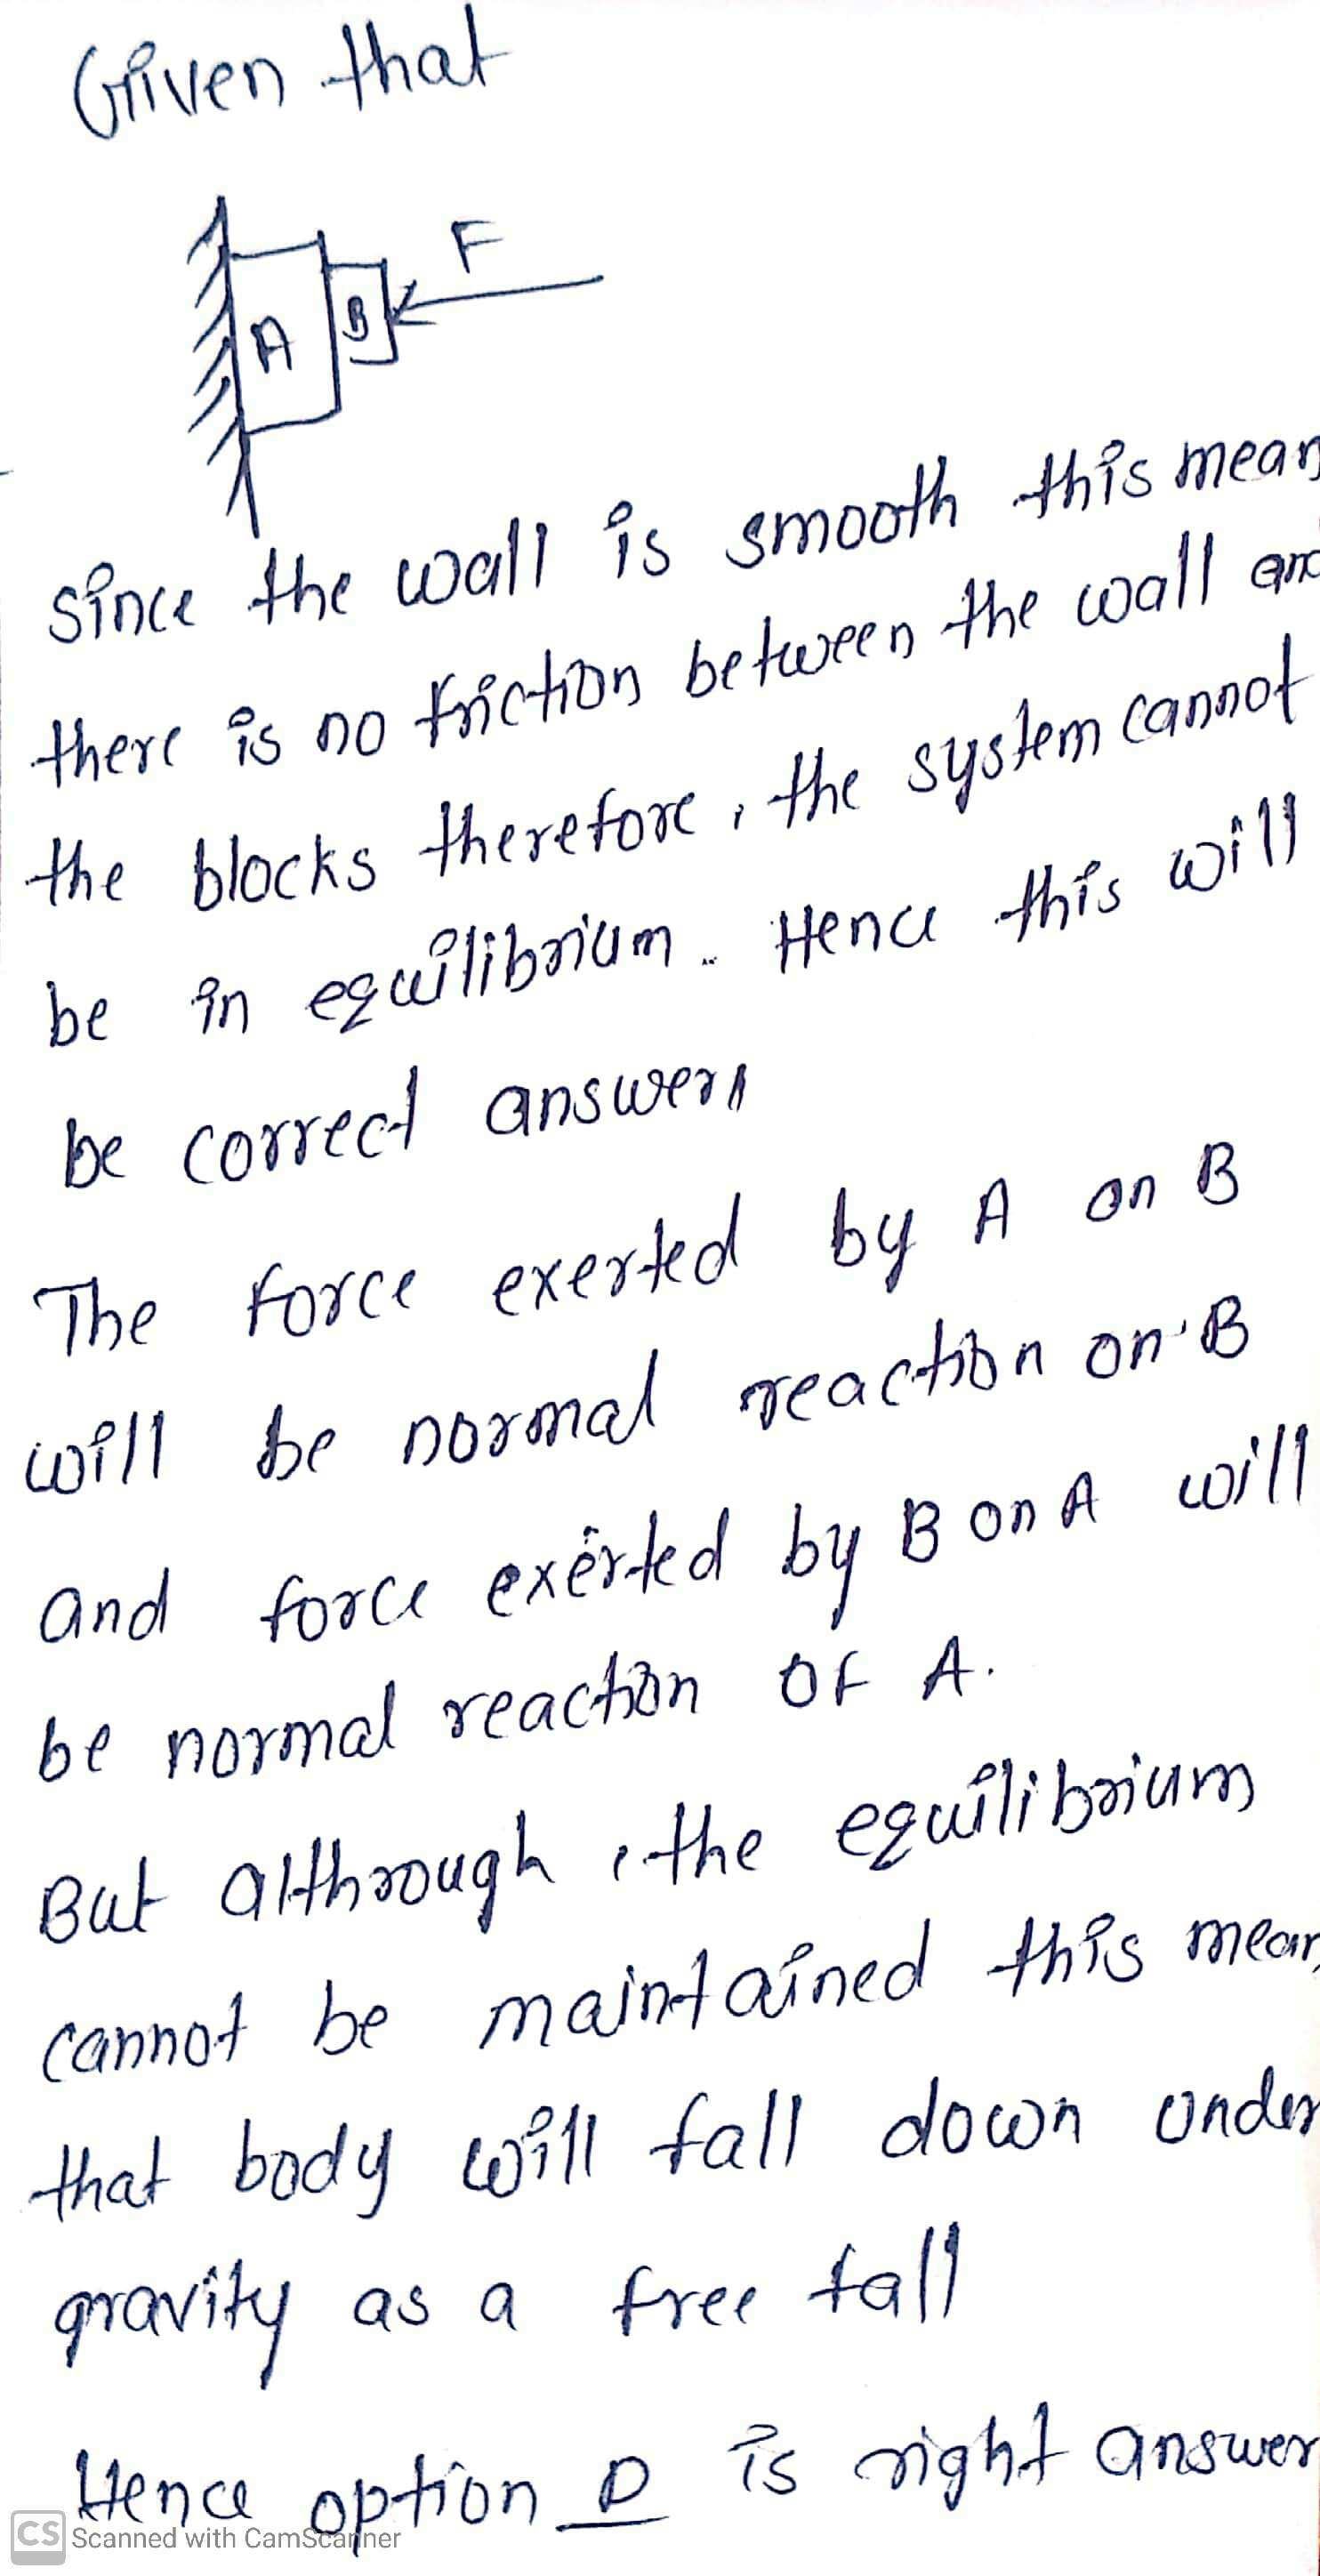 Given that
F
A
B
Since the wall is smooth this mean
there is no friction between the wall an
the blocks therefore, the system cannot
be in equilibrium.. Hence this will
be correct answer
The force exerted by A on B
will be normal reaction on B
and force exerted by B on A will
be normal reaction of A.
But althrough, the equilibrium
cannot be maintained this mean
that body will fall down under
gravity as a free fall
Hence option D is right answer
CS Scanned with CamScanner